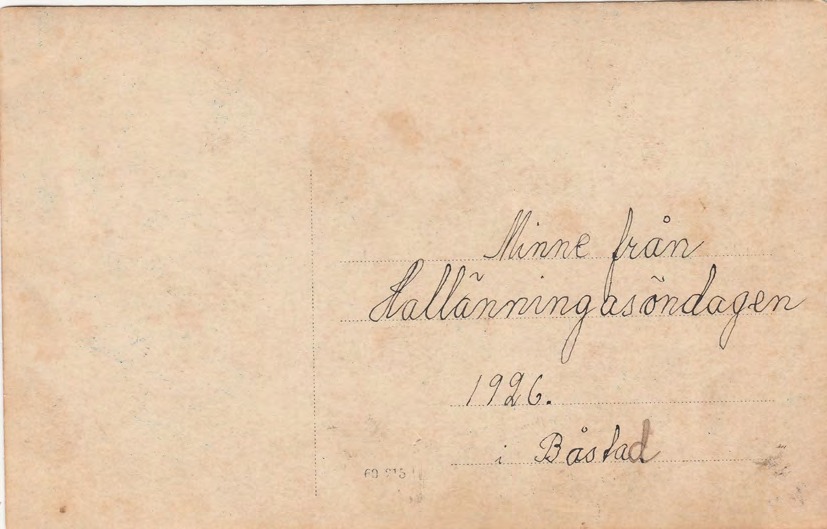 Minne från
Hallänningasöndagen
1926.
i Båstad